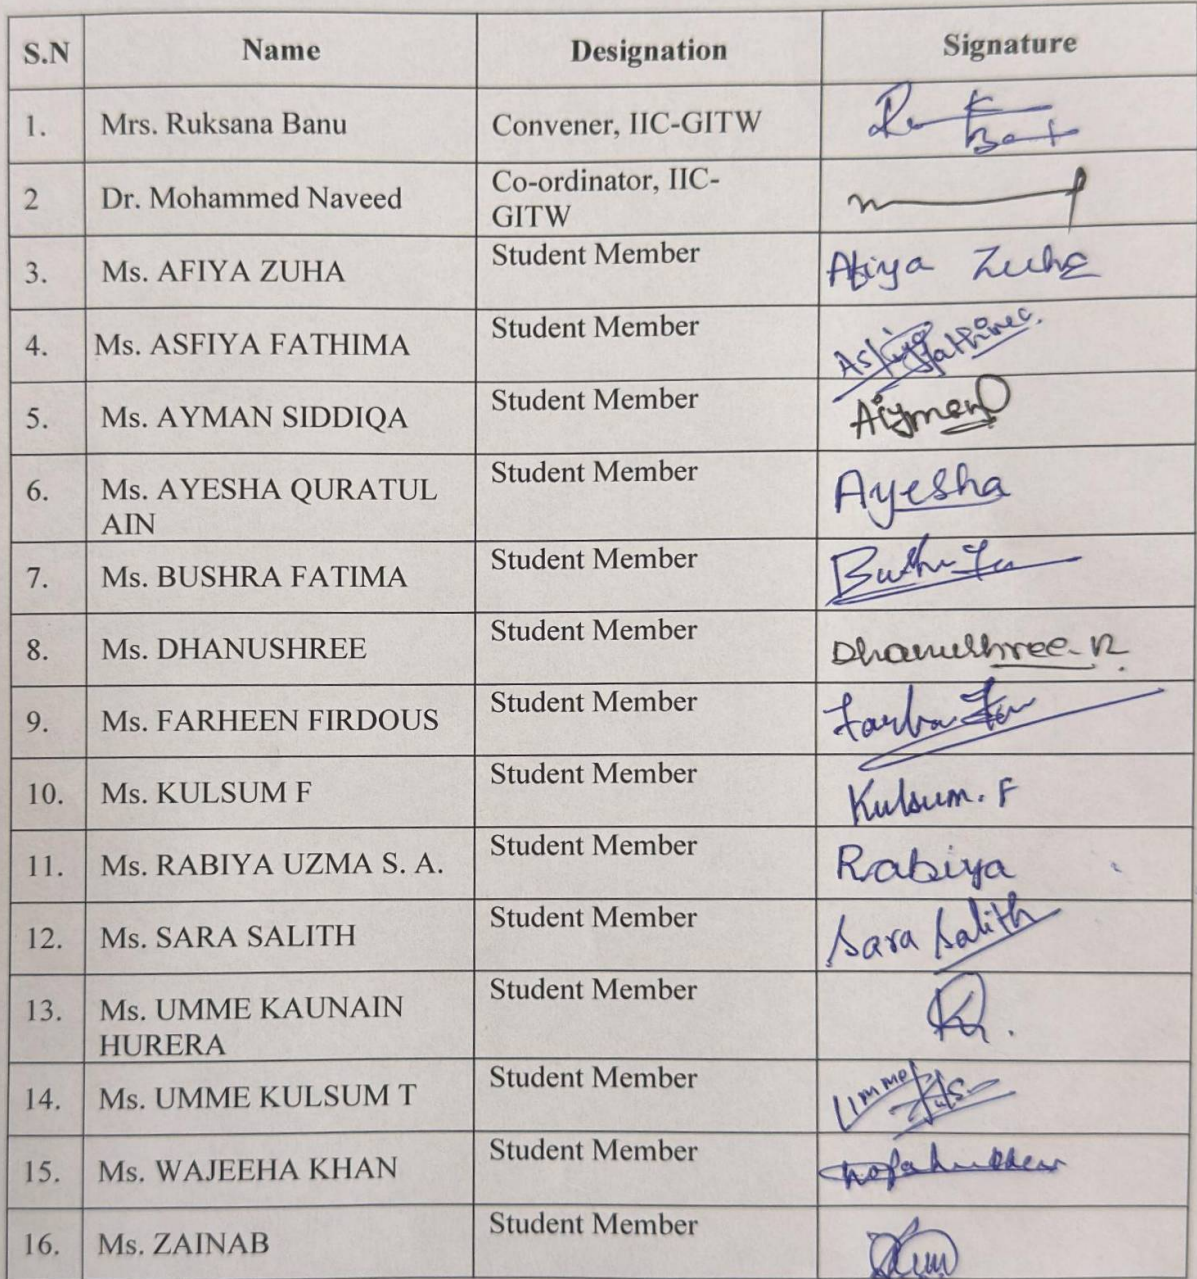 S.N Name Designation Signature
1. Mrs. Ruksana Banu Convener, IIC-GITW
2 Dr. Mohammed Naveed Co-ordinator, IIC-
GITW
3. Ms. AFIYA ZUHA Student Member Afiya Zuha
4. Ms. ASFIYA FATHIMA Student Member Asfiya Fathima
5. Ms. AYMAN SIDDIQA Student Member Aiyman
6. Ms. AYESHA QURATUL Student Member Ayesha
AIN
7. Ms. BUSHRA FATIMA Student Member
8. Ms. DHANUSHREE Student Member Dhanushree. R.
9. Ms. FARHEEN FIRDOUS Student Member
10. Ms. KULSUM F Student Member Kulsum. F
11. Ms. RABIYA UZMA S. A. Student Member Rabiya
12. Ms. SARA SALITH Student Member Sara Salith
13. Ms. UMME KAUNAIN Student Member
HURERA
14. Ms. UMME KULSUM T Student Member Umme
15. Ms. WAJEEHA KHAN Student Member
16. Ms. ZAINAB Student Member